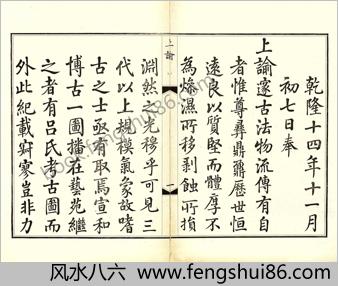 乾隆十四年十一月
初七日奉
上諭邃古法物流傳有自
者惟尊彝鼎鼐歷世恒
遠良以質堅而體厚不
為燥濕所移剝蝕所損
上諭
一
淵然之光穆乎可見三
代以上規模氣象故嗜
古之士亟有取焉宣和
博古一圖播在藝苑繼
之者有呂氏考古圖而
外此紀載寥寥豈非力
风水八六 www.fengshui86.com